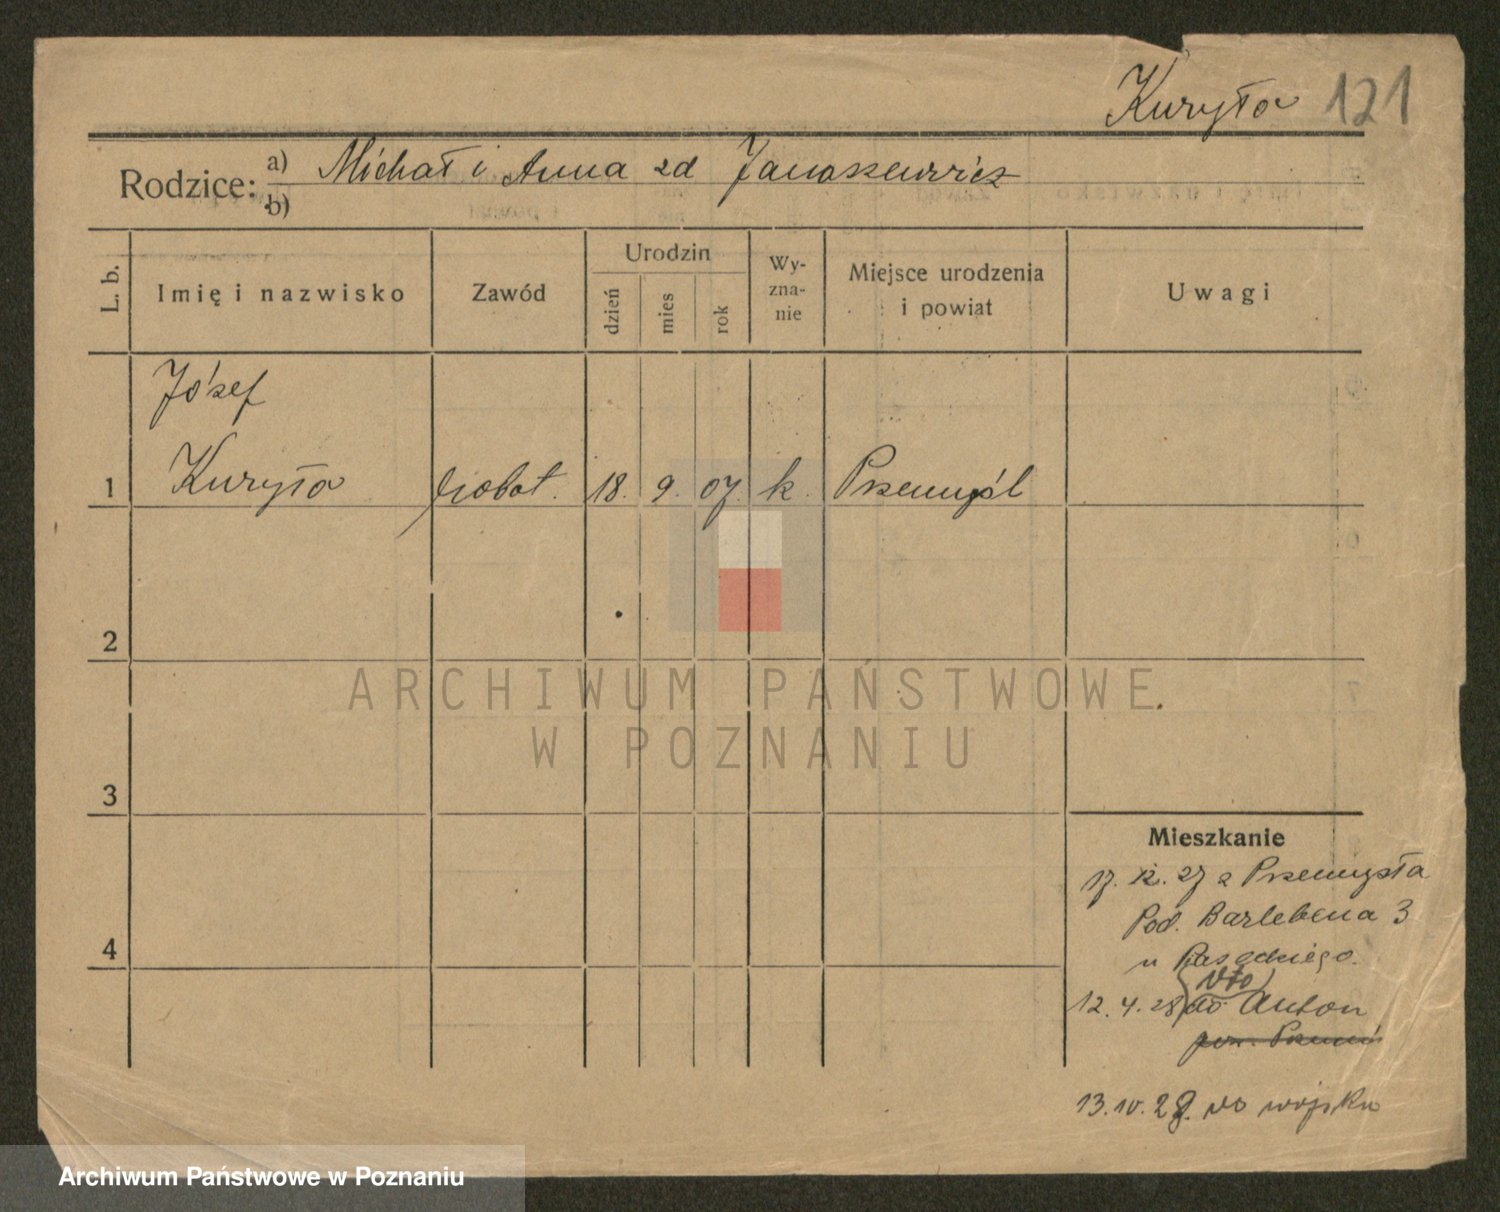 Kuryła 121
Rodzice: a) Michał i Anna zd Januszewicz
b)
L. b.
Imię i nazwisko
Zawód
Urodzin
dzień
mies
rok
Wy-
zna-
nie
Miejsce urodzenia
i powiat
Uwagi
Józef
1 Kuryła robot. 18. 9. 07. k. Przemyśl
2
3
4
Mieszkanie
17. 12. 27 z Przemyśla
Pod. Barlebena 3
u
12.4.28 do Anton
13.10.28. do wojska
ARCHIWUM PAŃSTWOWE
W POZNANIU
Archiwum Państwowe w Poznaniu